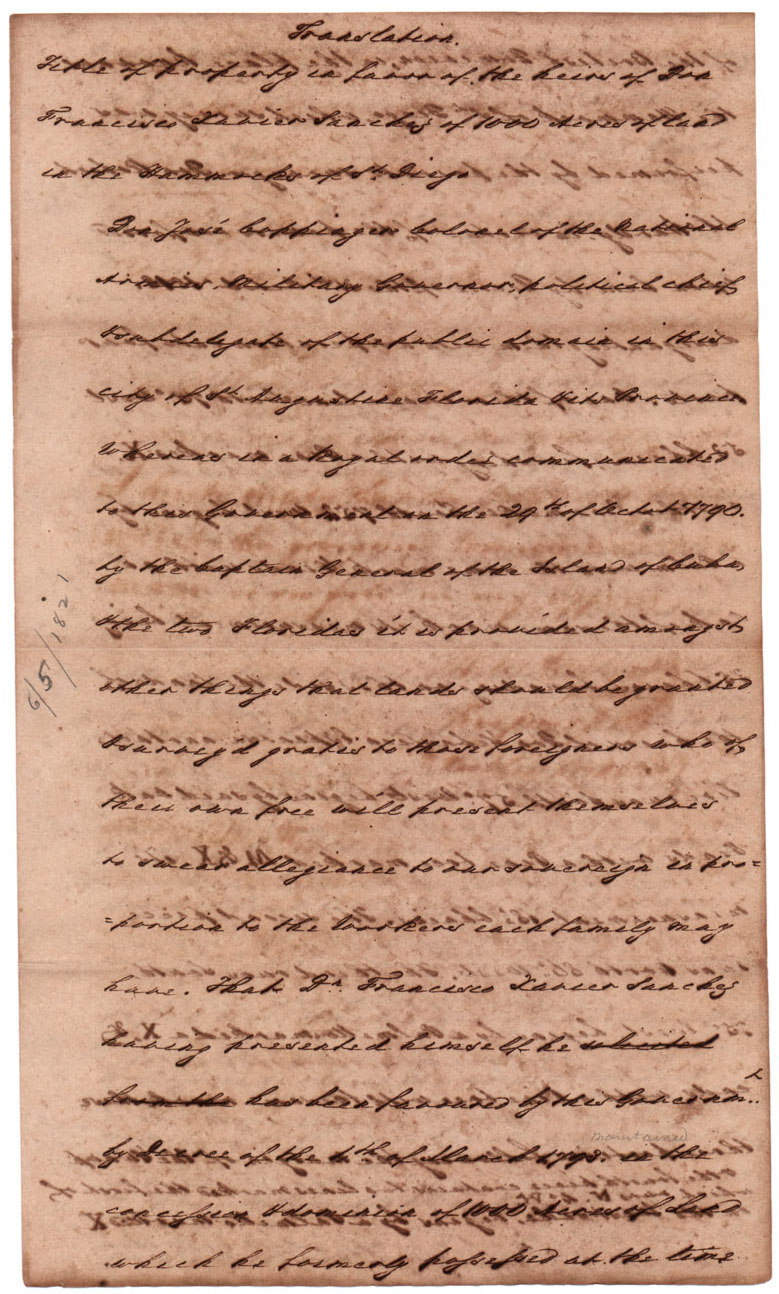 Translation.
Title of property in favor of the heirs of Don
Francisco Xavier Sanchez of 1000 Acres of land
in the Hammocks of St Diego
Don José Coppinger Colonel of the National
Armies, Military Governor, political chief
& subdelegate of the public domain in this
city of St Augustine Florida & its Province
Whereas in a Royal order communicated
to this Government on the 29th of Octobr 1790.
by the Captain General of the Island of Cuba
& the two Floridas it is provided amongst
other things that lands should be granted
& survey'd gratis to those foreigners who of
their own free will present themselves
to swear allegiance to our sovereign in pro=
=portion to the Workers each family may
have. That Dn Francisco Xavier Sanchez
having presented himself he
has been favoured by this Governmt
maintained
by Decree of the 4th of March 1793. in the
concession & dominion of 1000 Acres of Land
which he formerly possessed at the time
6/5/1821